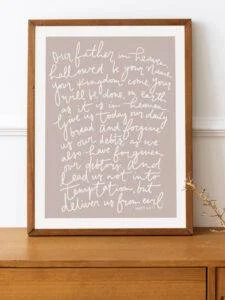 Our father in heaven
hallowed be your name
your kingdom come, your
will be done, on earth
as it is in heaven
Give us today our daily
bread and forgive
us our debts, as we
also have forgiven
our debtors. And
Lead us not into
Temptation, but
deliver us from evil